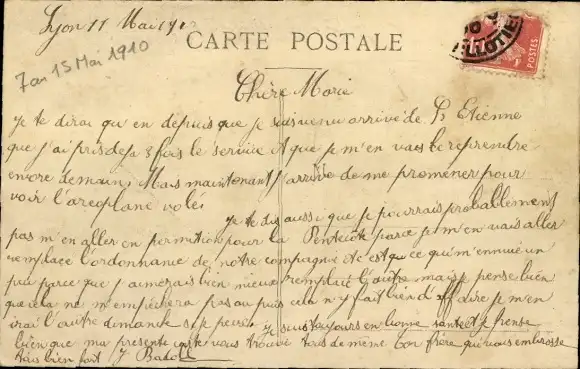 Lyon 11 Mai 19
CARTE POSTALE
7 au 15 Mai 1910
POSTES
Chère Marie
je te dirai qu en depuis que je suis venu arrivé de St Etienne
que j'ai pris deja 3 fois le service et que je m'en vais le reprendre
encore demain, Mais maintenant j'arrive de me promener pour
voir l'aréoplane volé,
je te dis aussi que je pourrais probablement
pas m'en aller en permition pour la Pentecôte parce je m'en vais aller
remplacé l'ordonnance de notre compagnie et est qu ce qu m'ennuie un
peu parce que j'aimerais bien mieux remplacé l'autre mais je pense bien
que cela ne m'empêchera pas au puis cela n'y fait bien d'aff dire je m'en
irai l'autre dimanche si je peu je suis toujours en bonne santé et je pense
bien que ma présente carte vous trouve tous de même Ton frère qui vous embrasse
tous bien fort J